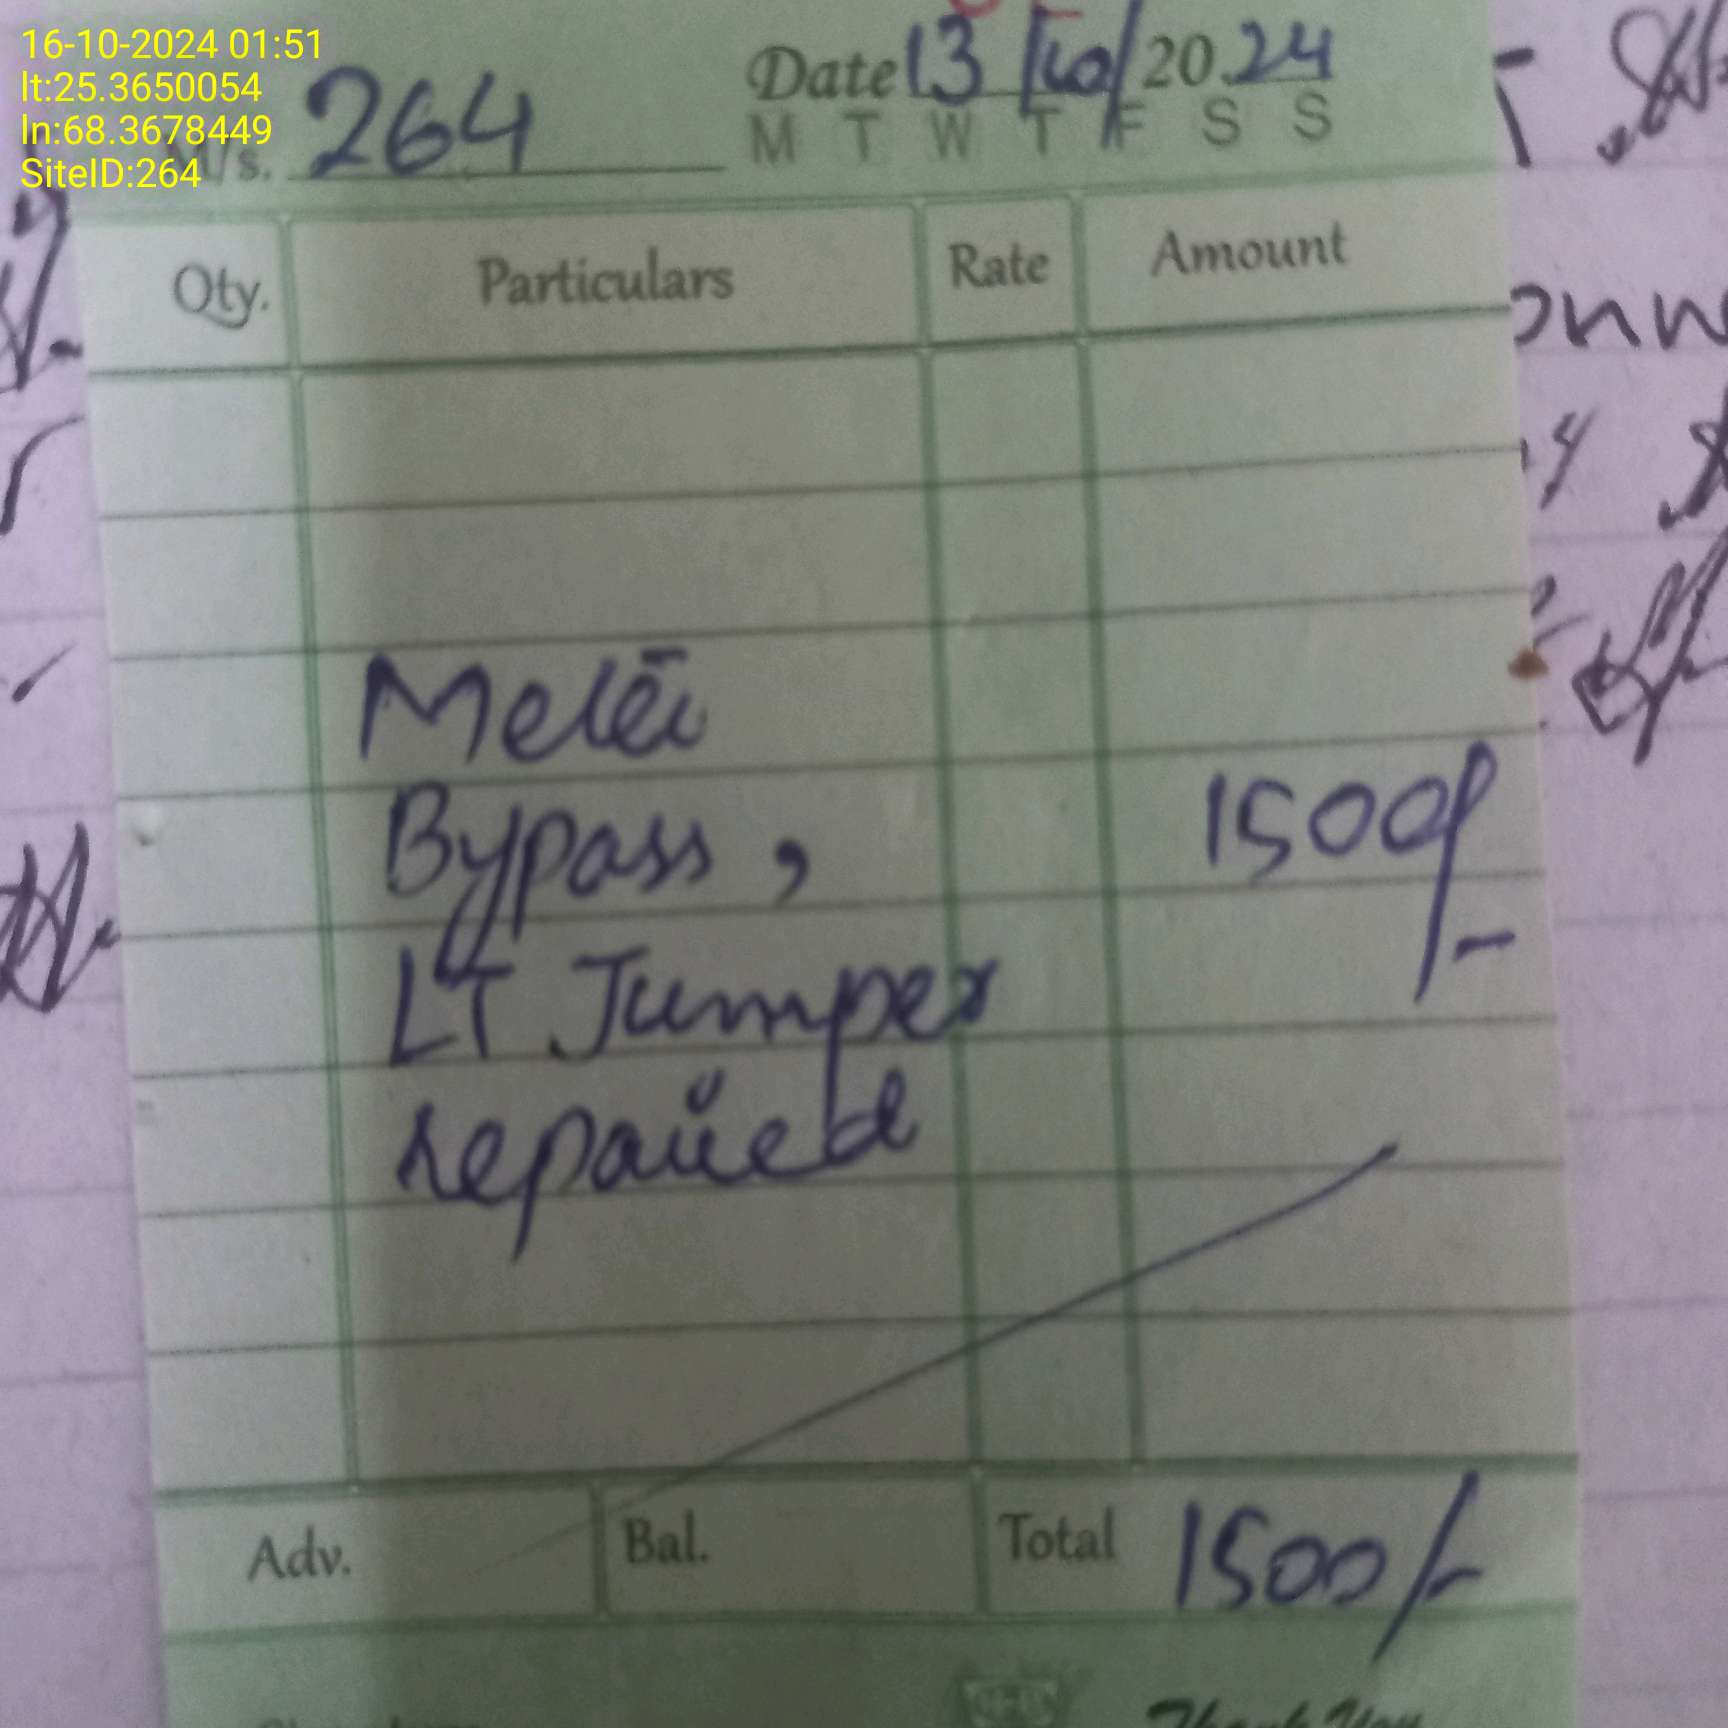 16-10-2024 01:51
lt:25.3650054
ln:68.3678449
SiteID:264
M/s. 264
Date 13/10/2024
M T W T F S S
Qty. Particulars Rate Amount
Meter
Bypass, 1500/-
LT Jumper
repaired
Adv. Bal. Total 1500/-
Thank You